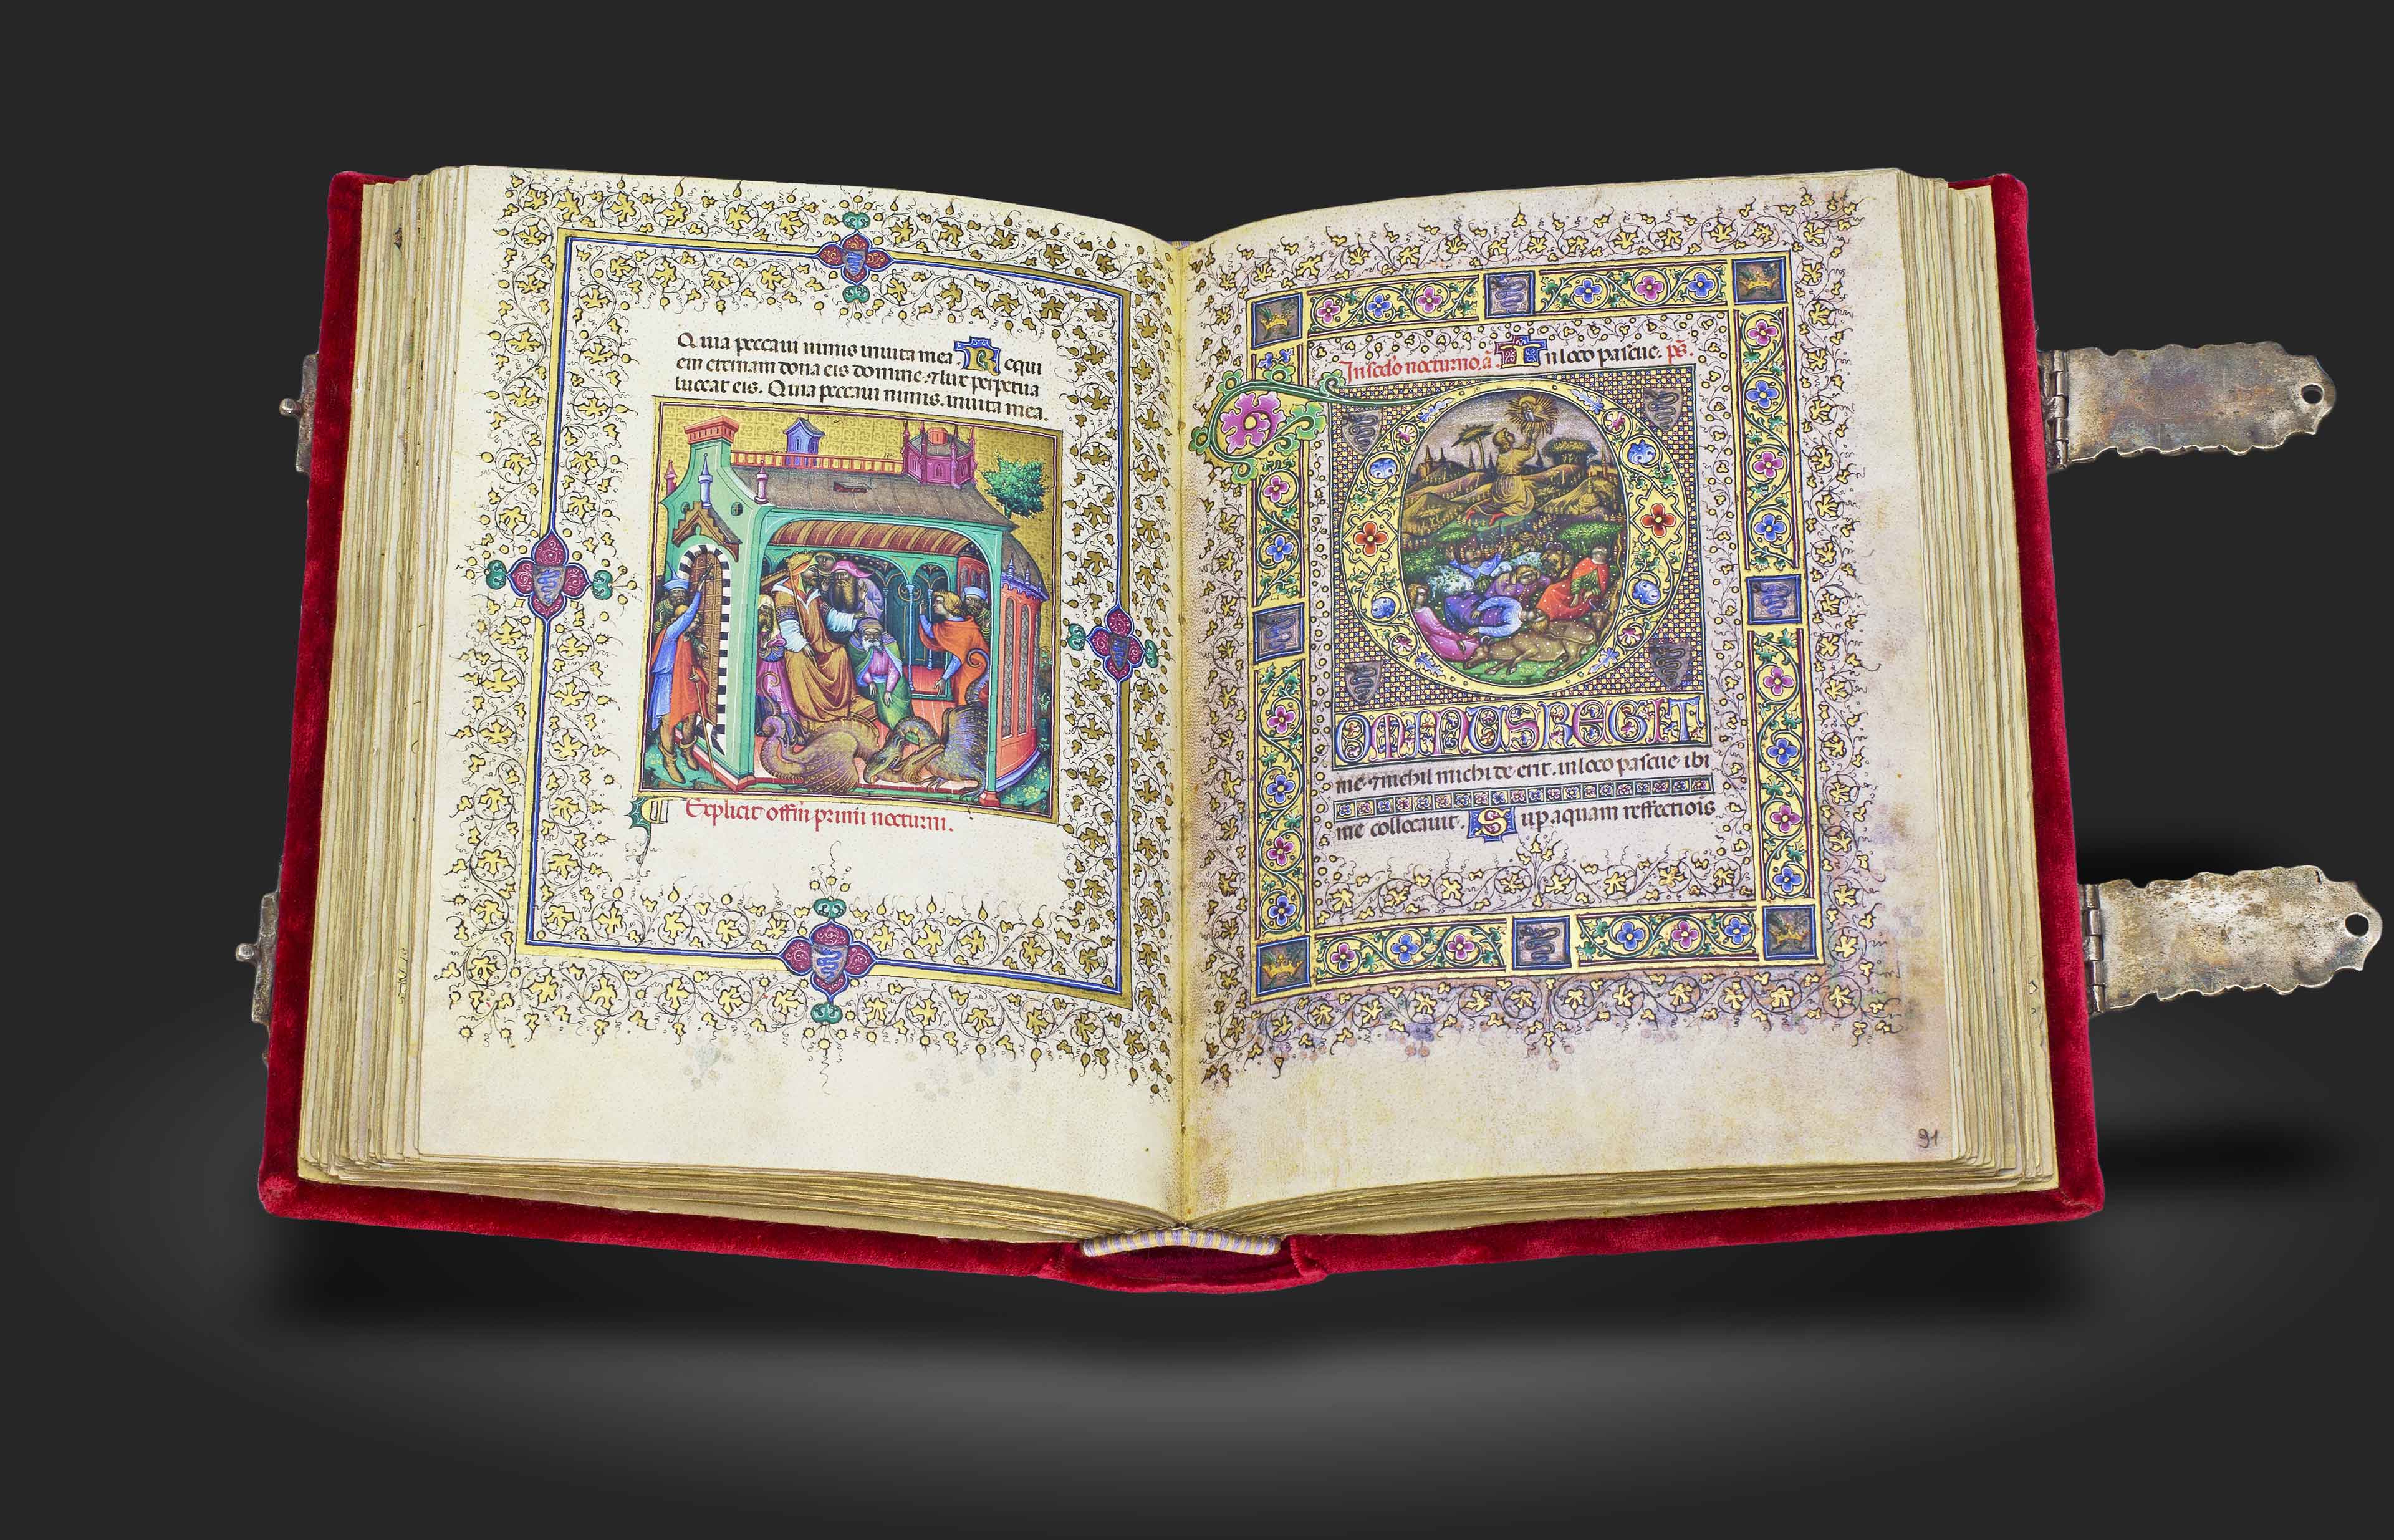 Quia peccaui nimis inuita mea Requi
em eternam dona eis domine. ⁊ lux perpetua
luceat eis. Quia peccaui nimis. inuita mea.
Explicit offm̄ primi nocturni.
In scd̄o nocturno. a̅ In loco pascue. ps̄.
DOMINUS REGIT
me ⁊ nichil michi de erit. in loco pascue ibi
me collocauit. Sup aquam reffectiois
91